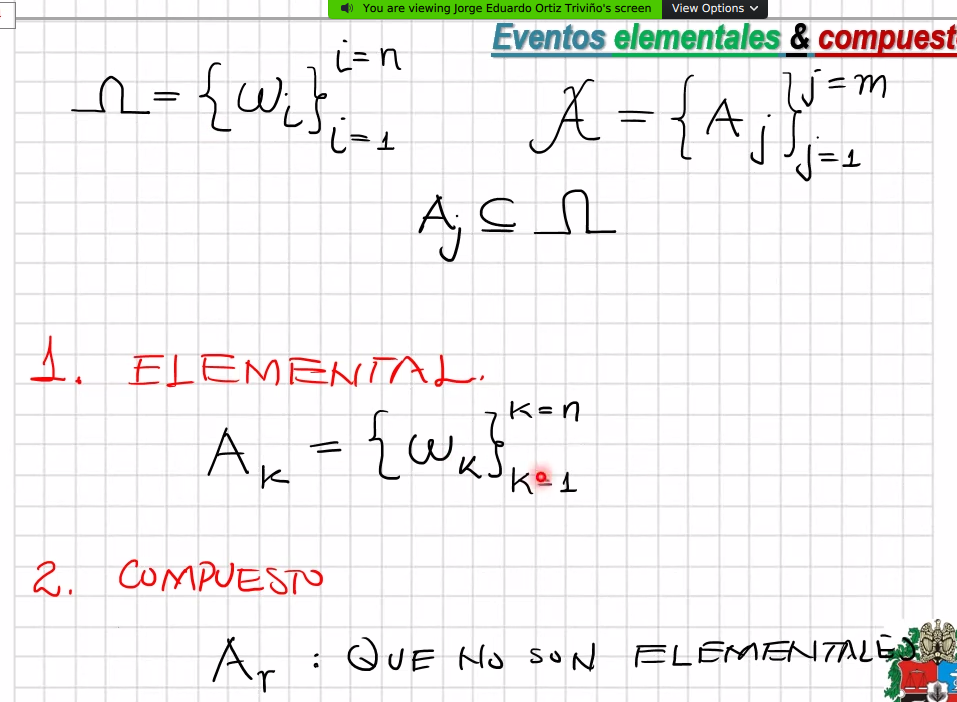 You are viewing Jorge Eduardo Ortiz Triviño's screen View Options
Eventos elementales & compuest
Ω = {ω_i}_{i=1}^{i=n} 𝒜 = {A_j}_{j=1}^{j=m}
A_j ⊆ Ω
1. ELEMENTAL.
A_k = {ω_k}_{k=1}^{k=n}
2. COMPUESTO
A_r : QUE NO SON ELEMENTALES